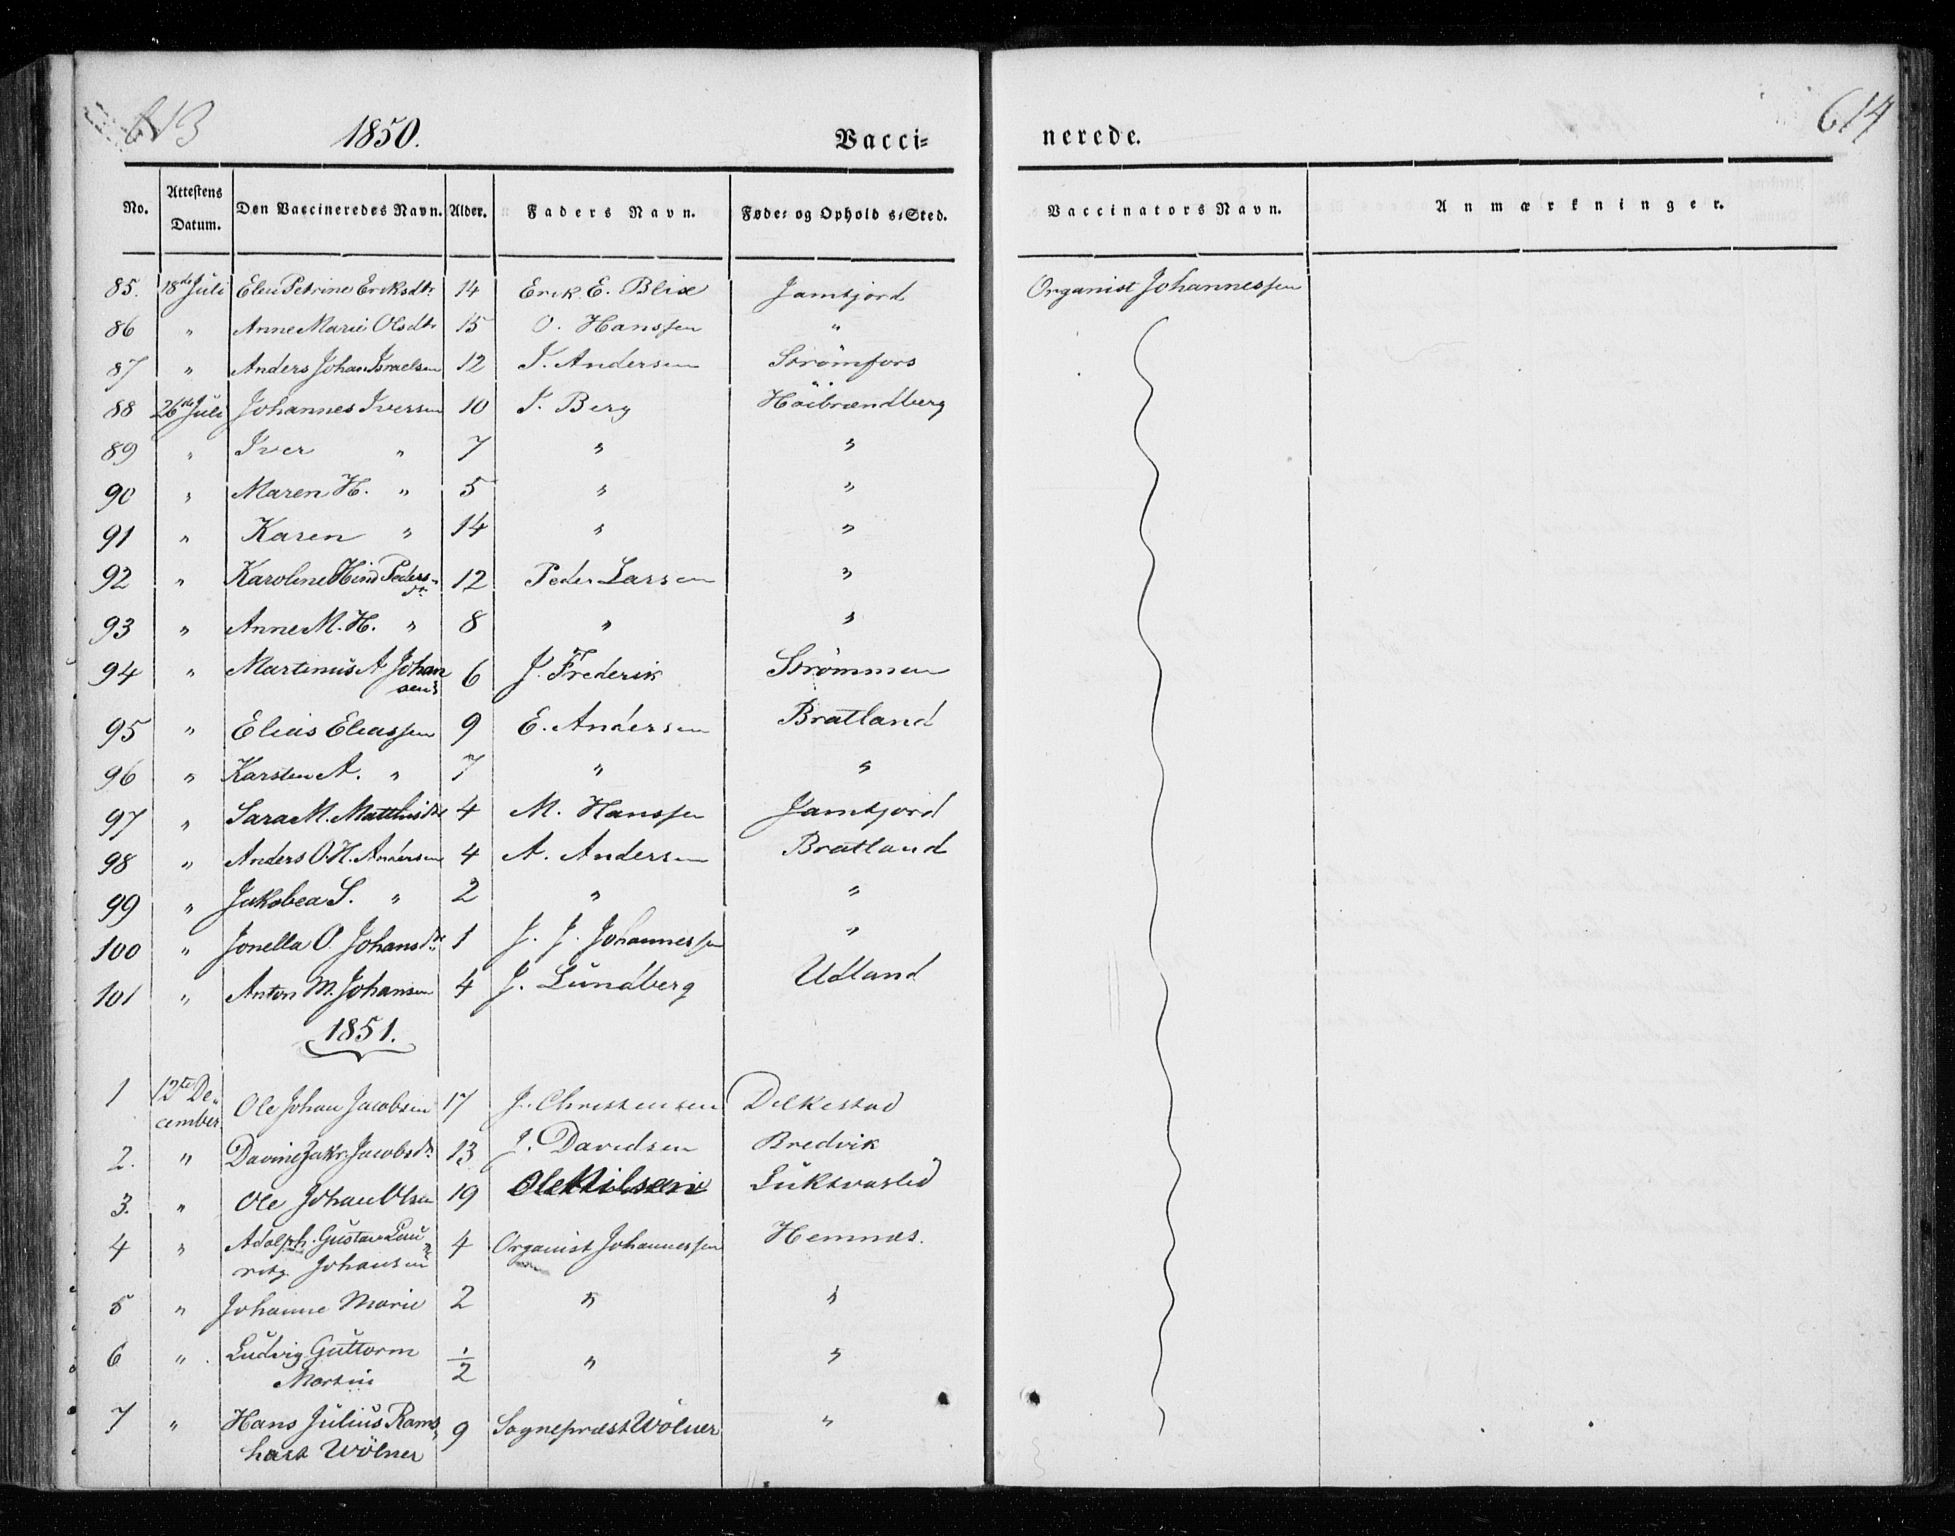 613 1850. Vacci= nerede. 614
No. Attestens Datum. Den Vaccineredes Navn. Alder. Faders Navn. Føde= og Ophold s=Sted. Vaccinators Navn. Anmærkninger.
85. 18de Juli Elen Petrine Eriksdtr 14 Erik E. Blix Jamtjord Organist Johannessen
86 " Anne Marie Olsdtr 15 O. Hanssen "
87 " Anders Johan Israelsen 12 I. Andersen Strømfors
88 26de Juli Johannes Iversen 10 I. Berg Höibrændberg
89 " Iver " 7 " "
90 " Maren H. " 5 " "
91 " Karen " 14 " "
92 " Karoline Hind Peders- 12 Peder Larsen "
dtr
93 " Anne M. H. " 8 " "
94 " Martinus A Johan 6 J. Frederik Strømmen
sen
95 " Elias Eliassen 9 E. Andersen Bratland
96 " Karsten A. " 7 " "
97 " Sara M. Matthisdtr 4 M. Hanssen Jamtjord
98 " Anders O. H. Andersen 4 A. Andersen Bratland
99 " Jakobea S. " 2 " "
100 " Jonella O. Johansdtr 1 J. J. Johannessen "
101 " Anton M. Johansen 4 J. Lundberg Udland
1851.
1 12te De=
cember Ole Johan Jacobsen 17 J. Christensen Delkestad
2. " Davine Jakr. Jacobsdtr 13 J. Davidsen Bredvik
3. " Ole Johan Olsen 19 Ole Nilsen Luktvaslid
4 " Adolph Gustav Lau= 4 Organist Johannessen Hemnæs.
ritz Johansen
5 " Johanne Marie 2 " "
6 " " Ludvig Guttorm 1/2 " "
Martin
7 " Hans Julius Rams 9 Sognepræst Wölner "
hart Wölner